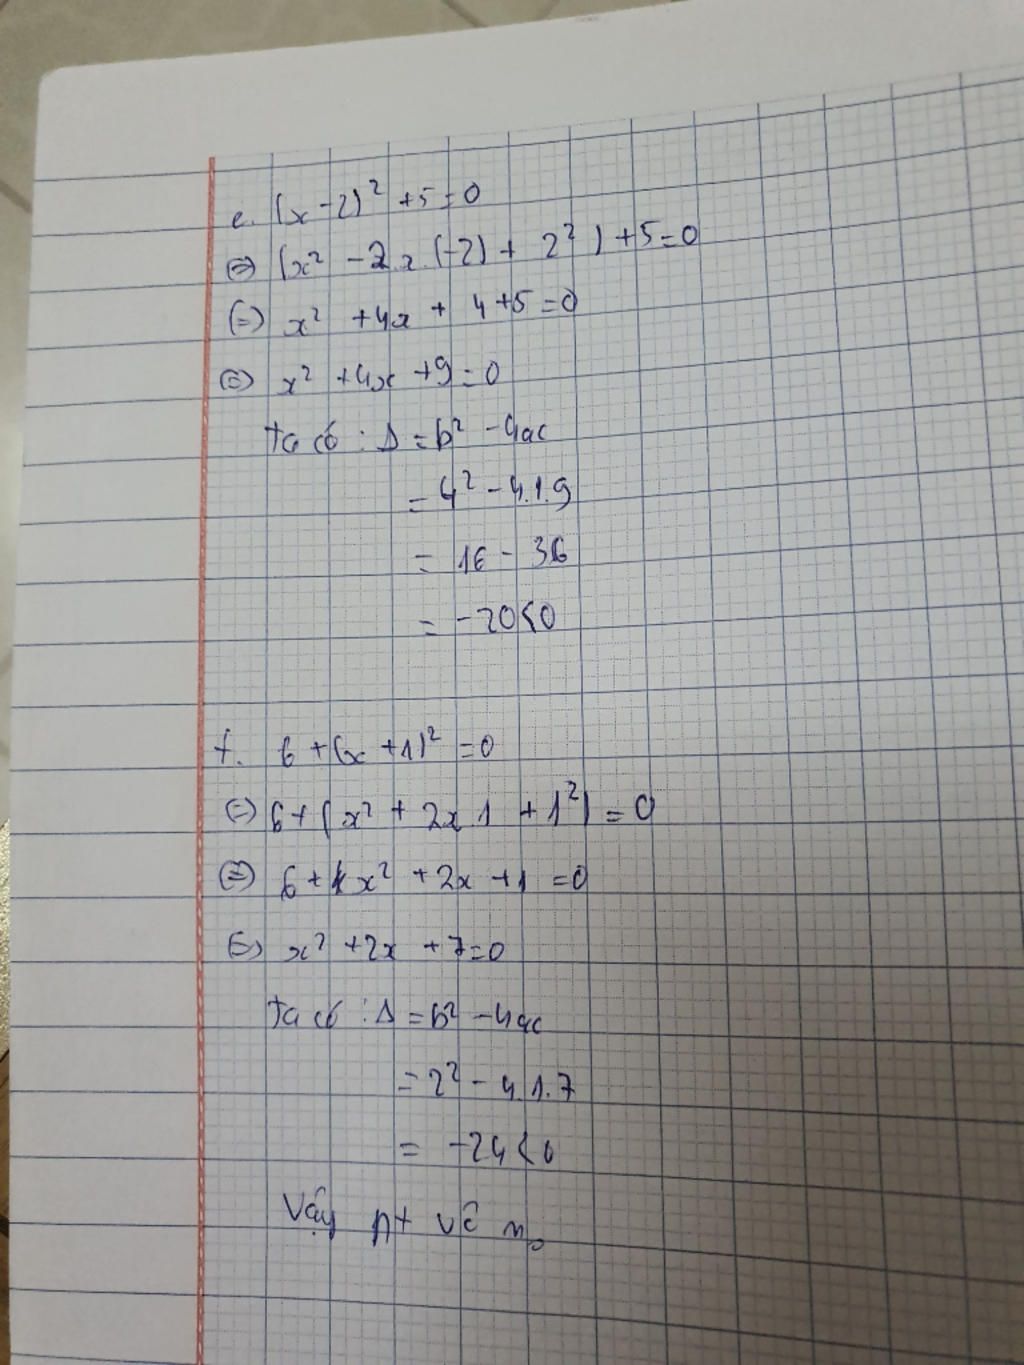 e. (x-2)² +5=0
(=) (x² - 2.x.(-2) + 2²) +5=0
(=) x² +4x + 4+5=0
(=) x² +4x +9=0
Ta có : Δ = b² - 4ac
= 4² - 4.1.9
= 16 - 36
= -20<0
f. 6 + (x +1)² =0
(=) 6+(x² + 2x 1 + 1²) = 0
(=) 6 + x² +2x +1 =0
(=) x² +2x +7=0
Ta có : Δ = b² - 4ac
= 2² - 4.1.7
= -24<0
Vậy pt vô no